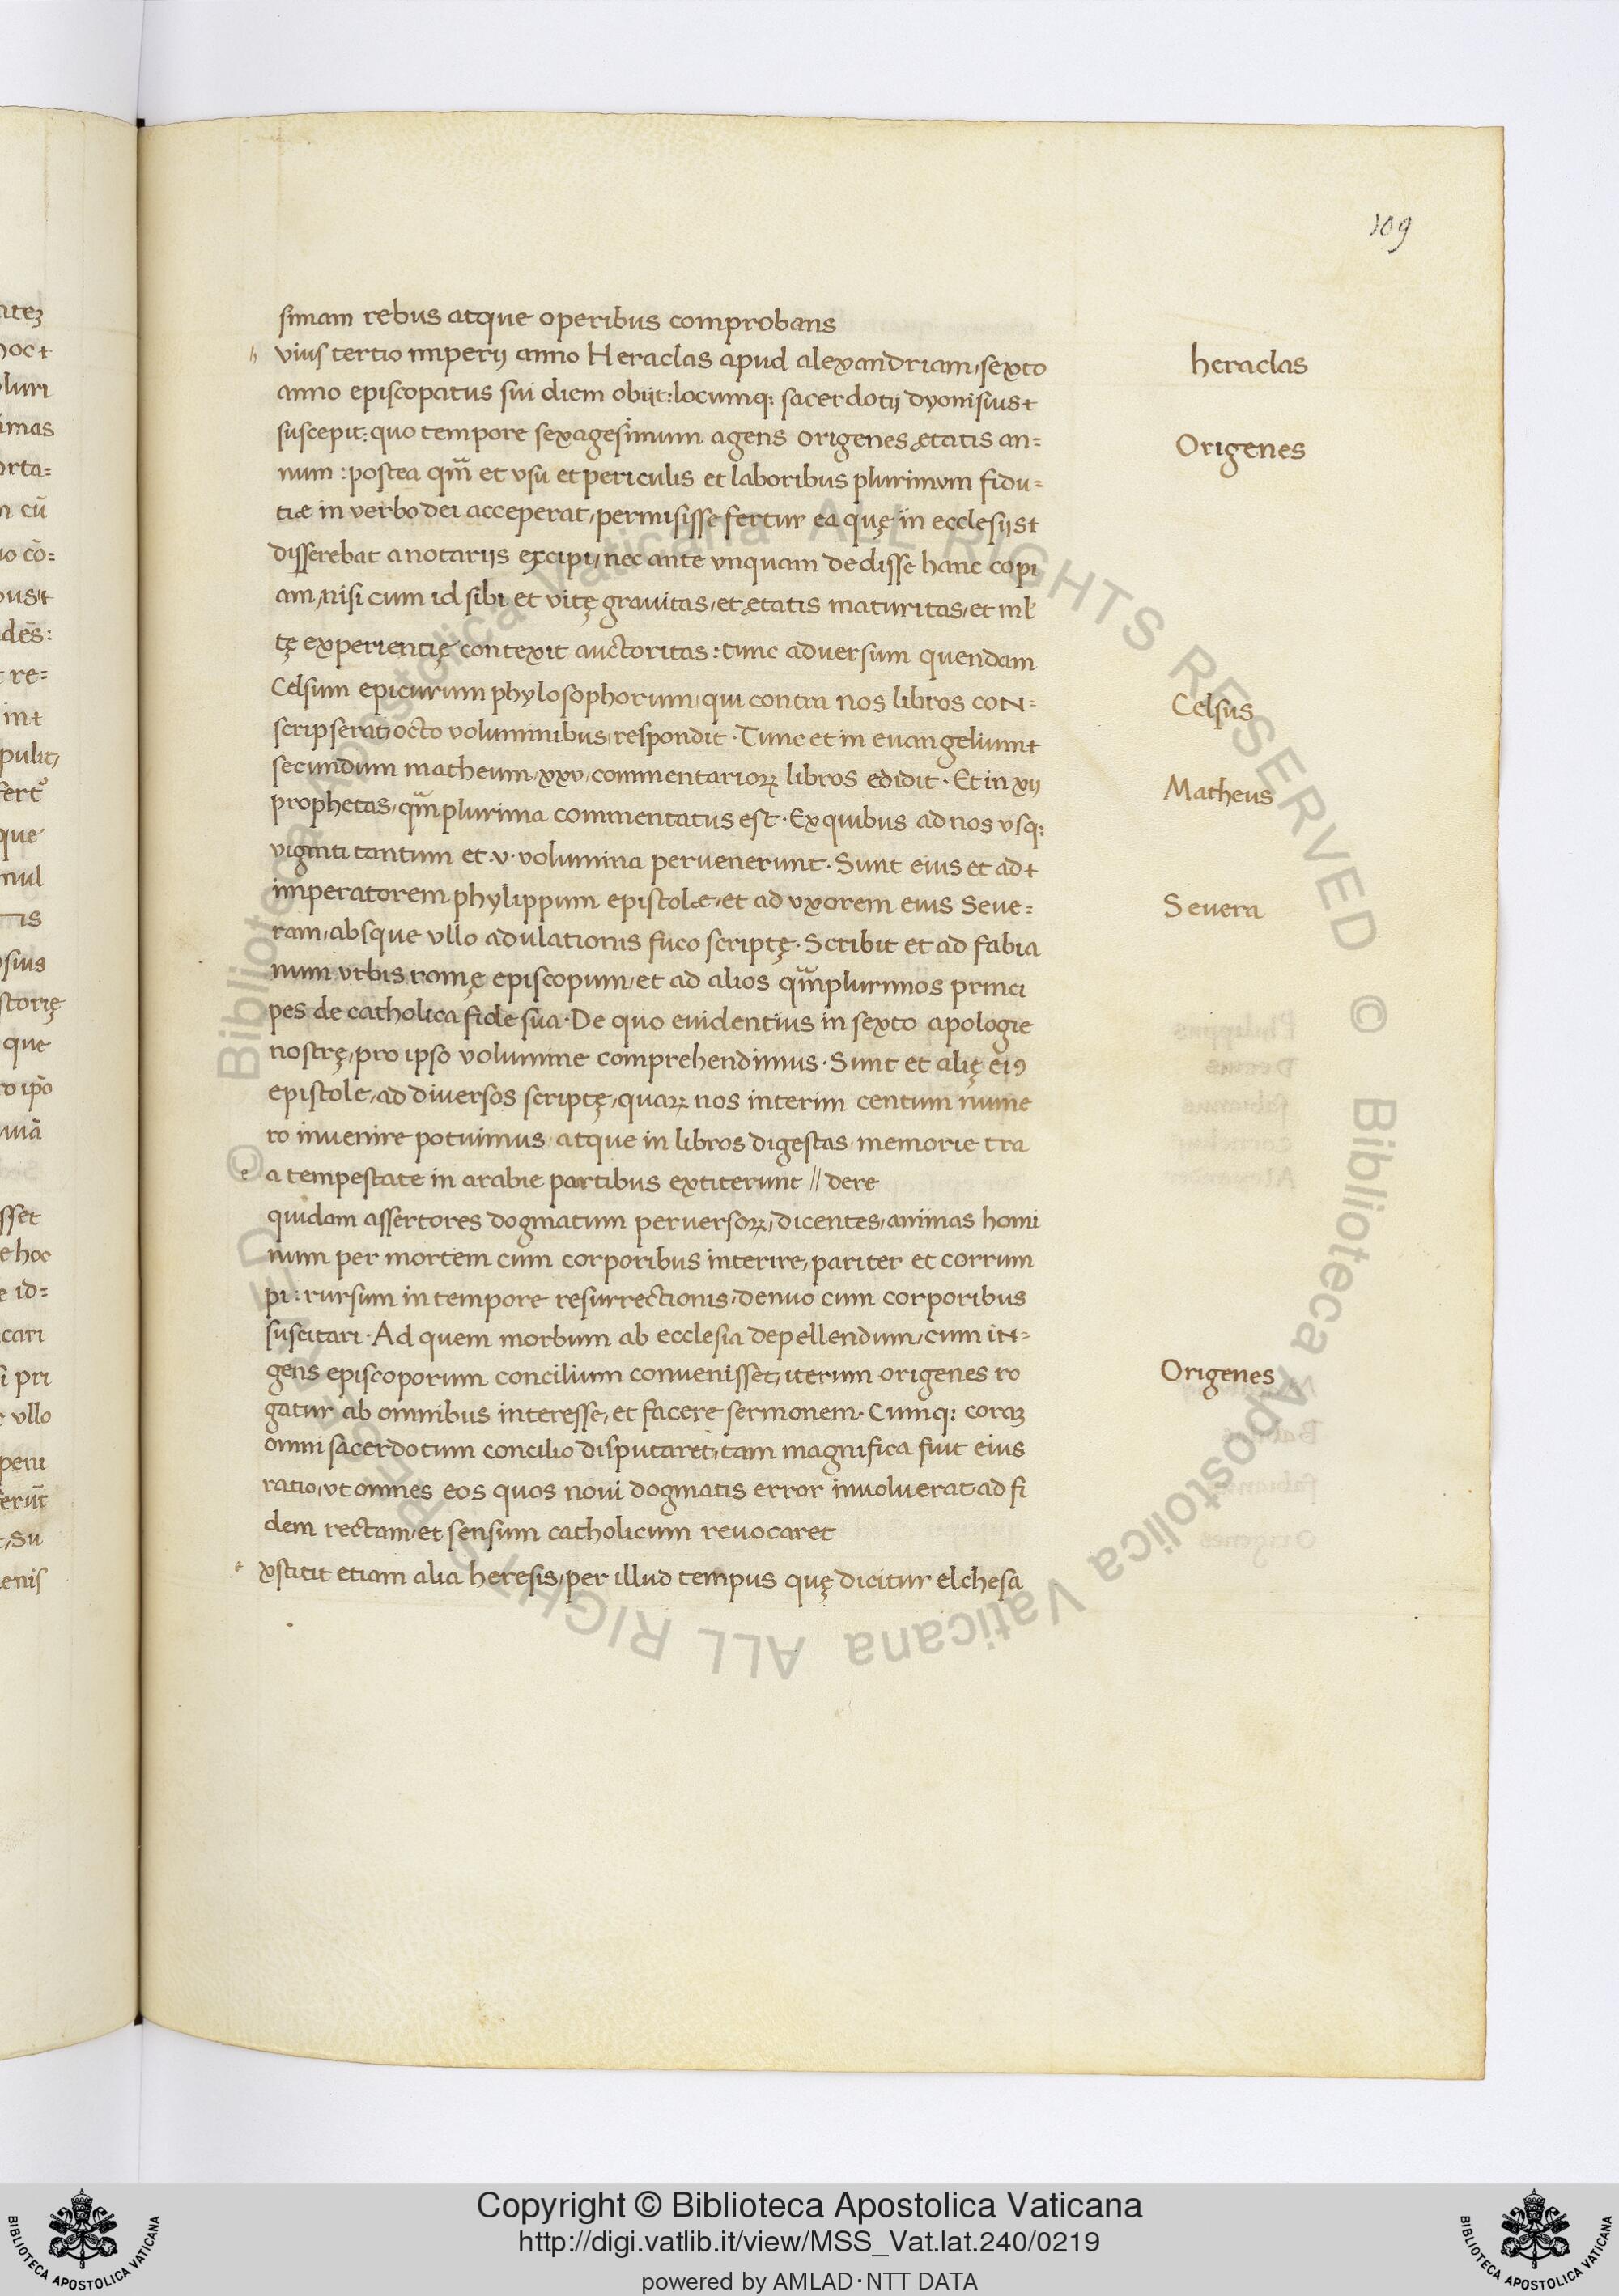 109
simam rebus atque operibus comprobans
h vius tertio imperij anno Heraclas apud alexandriam, sexto
heraclas
anno episcopatus sui diem obijt: locumq; sacerdotij dyonisius
suscepit: quo tempore sexagesimum agens origenes ętatis an=
Origenes
num: postea qm̃ et vsu et periculis et laboribus plurimvm fidu=
tiæ in verbo dei acceperat, permisisse fertur ea quę in ecclesijs
disserebat a notarijs excipi, nec ante vnquam dedisse hanc copi
am, nisi cum id sibi et vitę grauitas, et ętatis maturitas, et ml
tę experientię contexit auctoritas: tunc aduersum quendam
Celsum epicurum phylosophorum, qui contra nos libros con=
Celsus
scripserat, octo voluminibus respondit. Tunc et in euangelium
secundum matheum, xxv, commentarioꝝ libros edidit. Et in xij
Matheus
prophetas, qm̃plurima commentatus est. Ex quibus ad nos vsq;
viginti tantum et .v. volumina peruenerunt. Sunt eius et ad
imperatorem phylippum epistolæ, et ad vxorem eius Seue=
Seuera
ram, absque vllo adulationis fuco scriptę. Scribit et ad fabia
num vrbis romę episcopum, et ad alios qm̃plurimos princi
pes de catholica fide sua. De quo euidentius in sexto apologie
nostrę, pro ipso volumine comprehendimus. Sunt et alię eiꝰ
epistole, ad diuersos scriptę, quaꝝ nos interim centum nume
ro inuenire potuimus atque in libros digestas memorie tra
e a tempestate in arabie partibus extiterunt // dere
quidam assertores dogmatum peruersoꝝ, dicentes, animas homi
num per mortem cum corporibus interire, pariter et corrum
pi: rursum in tempore resurrectionis, denuo cum corporibus
suscitari. Ad quem morbum ab ecclesia depellendum, cum in=
gens episcoporum concilium conuenisset, iterum origenes ro
Origenes
gatur ab omnibus interesse, et facere sermonem. Cumq; coraꝫ
omni sacerdotum concilio disputaret, tam magnifica fuit eius
ratio, vt omnes eos quos noui dogmatis error inuoluerat, ad fi
dem rectam, et sensum catholicum reuocaret
e xstitit etiam alia heresis, per illud tempus quę dicitur elchesa
Copyright © Biblioteca Apostolica Vaticana
http://digi.vatlib.it/view/MSS_Vat.lat.240/0219
powered by AMLAD·NTT DATA
BIBLIOTECA APOSTOLICA VATICANA
BIBLIOTECA APOSTOLICA VATICANA
© Biblioteca Apostolica Vaticana ALL RIGHTS RESERVED © Biblioteca Apostolica Vaticana ALL RIGHTS RESERVED